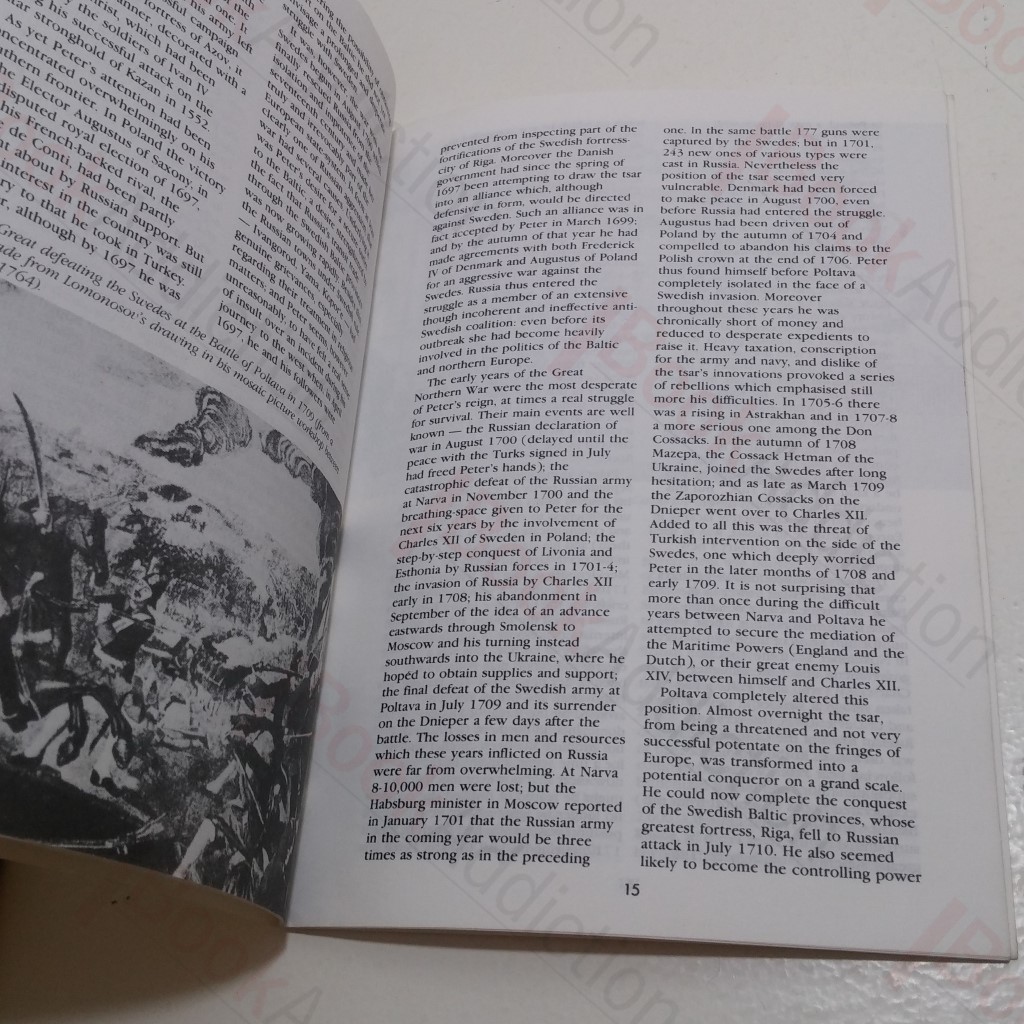 fortress of Azov, it
decorated with a
which had been
by the soldiers of Ivan IV
his successful attack on the
stronghold of Kazan in 1552.
As yet Peter's attention had been
overwhelmingly on his
frontier. In Poland the victory
Elector Augustus of Saxony, in
disputed royal election of 1697,
his French-backed rival, the
de Conti, had been partly
about by Russian support. But
interest in the country was still
to that he took in Turkey.
although by 1697 he was
It was, however,
European state system
war had several causes
to the Baltic, a desire
the fact that Russia's
through the
was now growing rapidly
the Russian towns
— Ivangorod, Yama, Koporye
genuine grievances
regarding their trade
matters; and Peter seems,
unreasonably, to have felt a real sense
of insult over an incident during his
journey to the west when, in April
1697, he and his followers were
Great defeating the Swedes at the Battle of Poltava in 1709 (from a
from Lomonosov's drawing in his mosaic picture workshop between
1764)
prevented from inspecting part of the
fortifications of the Swedish fortress-
city of Riga. Moreover the Danish
government had since the spring of
1697 been attempting to draw the tsar
into an alliance which, although
defensive in form, would be directed
against Sweden. Such an alliance was in
fact accepted by Peter in March 1699;
and by the autumn of that year he had
made agreements with both Frederick
IV of Denmark and Augustus of Poland
for an aggressive war against the
Swedes. Russia thus entered the
struggle as a member of an extensive
though incoherent and ineffective anti-
Swedish coalition: even before its
outbreak she had become heavily
involved in the politics of the Baltic
and northern Europe.
The early years of the Great
Northern War were the most desperate
of Peter's reign, at times a real struggle
for survival. Their main events are well
known — the Russian declaration of
war in August 1700 (delayed until the
peace with the Turks signed in July
had freed Peter's hands); the
catastrophic defeat of the Russian army
at Narva in November 1700 and the
breathing-space given to Peter for the
next six years by the involvement of
Charles XII of Sweden in Poland; the
step-by-step conquest of Livonia and
Esthonia by Russian forces in 1701-4;
the invasion of Russia by Charles XII
early in 1708; his abandonment in
September of the idea of an advance
eastwards through Smolensk to
Moscow and his turning instead
southwards into the Ukraine, where he
hoped to obtain supplies and support;
the final defeat of the Swedish army at
Poltava in July 1709 and its surrender
on the Dnieper a few days after the
battle. The losses in men and resources
which these years inflicted on Russia
were far from overwhelming. At Narva
8-10,000 men were lost; but the
Habsburg minister in Moscow reported
in January 1701 that the Russian army
in the coming year would be three
times as strong as in the preceding
one. In the same battle 177 guns were
captured by the Swedes; but in 1701,
243 new ones of various types were
cast in Russia. Nevertheless the
position of the tsar seemed very
vulnerable. Denmark had been forced
to make peace in August 1700, even
before Russia had entered the struggle.
Augustus had been driven out of
Poland by the autumn of 1704 and
compelled to abandon his claims to the
Polish crown at the end of 1706. Peter
thus found himself before Poltava
completely isolated in the face of a
Swedish invasion. Moreover
throughout these years he was
chronically short of money and
reduced to desperate expedients to
raise it. Heavy taxation, conscription
for the army and navy, and dislike of
the tsar's innovations provoked a series
of rebellions which emphasised still
more his difficulties. In 1705-6 there
was a rising in Astrakhan and in 1707-8
a more serious one among the Don
Cossacks. In the autumn of 1708
Mazepa, the Cossack Hetman of the
Ukraine, joined the Swedes after long
hesitation; and as late as March 1709
the Zaporozhian Cossacks on the
Dnieper went over to Charles XII.
Added to all this was the threat of
Turkish intervention on the side of the
Swedes, one which deeply worried
Peter in the later months of 1708 and
early 1709. It is not surprising that
more than once during the difficult
years between Narva and Poltava he
attempted to secure the mediation of
the Maritime Powers (England and the
Dutch), or their great enemy Louis
XIV, between himself and Charles XII.
Poltava completely altered this
position. Almost overnight the tsar,
from being a threatened and not very
successful potentate on the fringes of
Europe, was transformed into a
potential conqueror on a grand scale.
He could now complete the conquest
of the Swedish Baltic provinces, whose
greatest fortress, Riga, fell to Russian
attack in July 1710. He also seemed
likely to become the controlling power
15